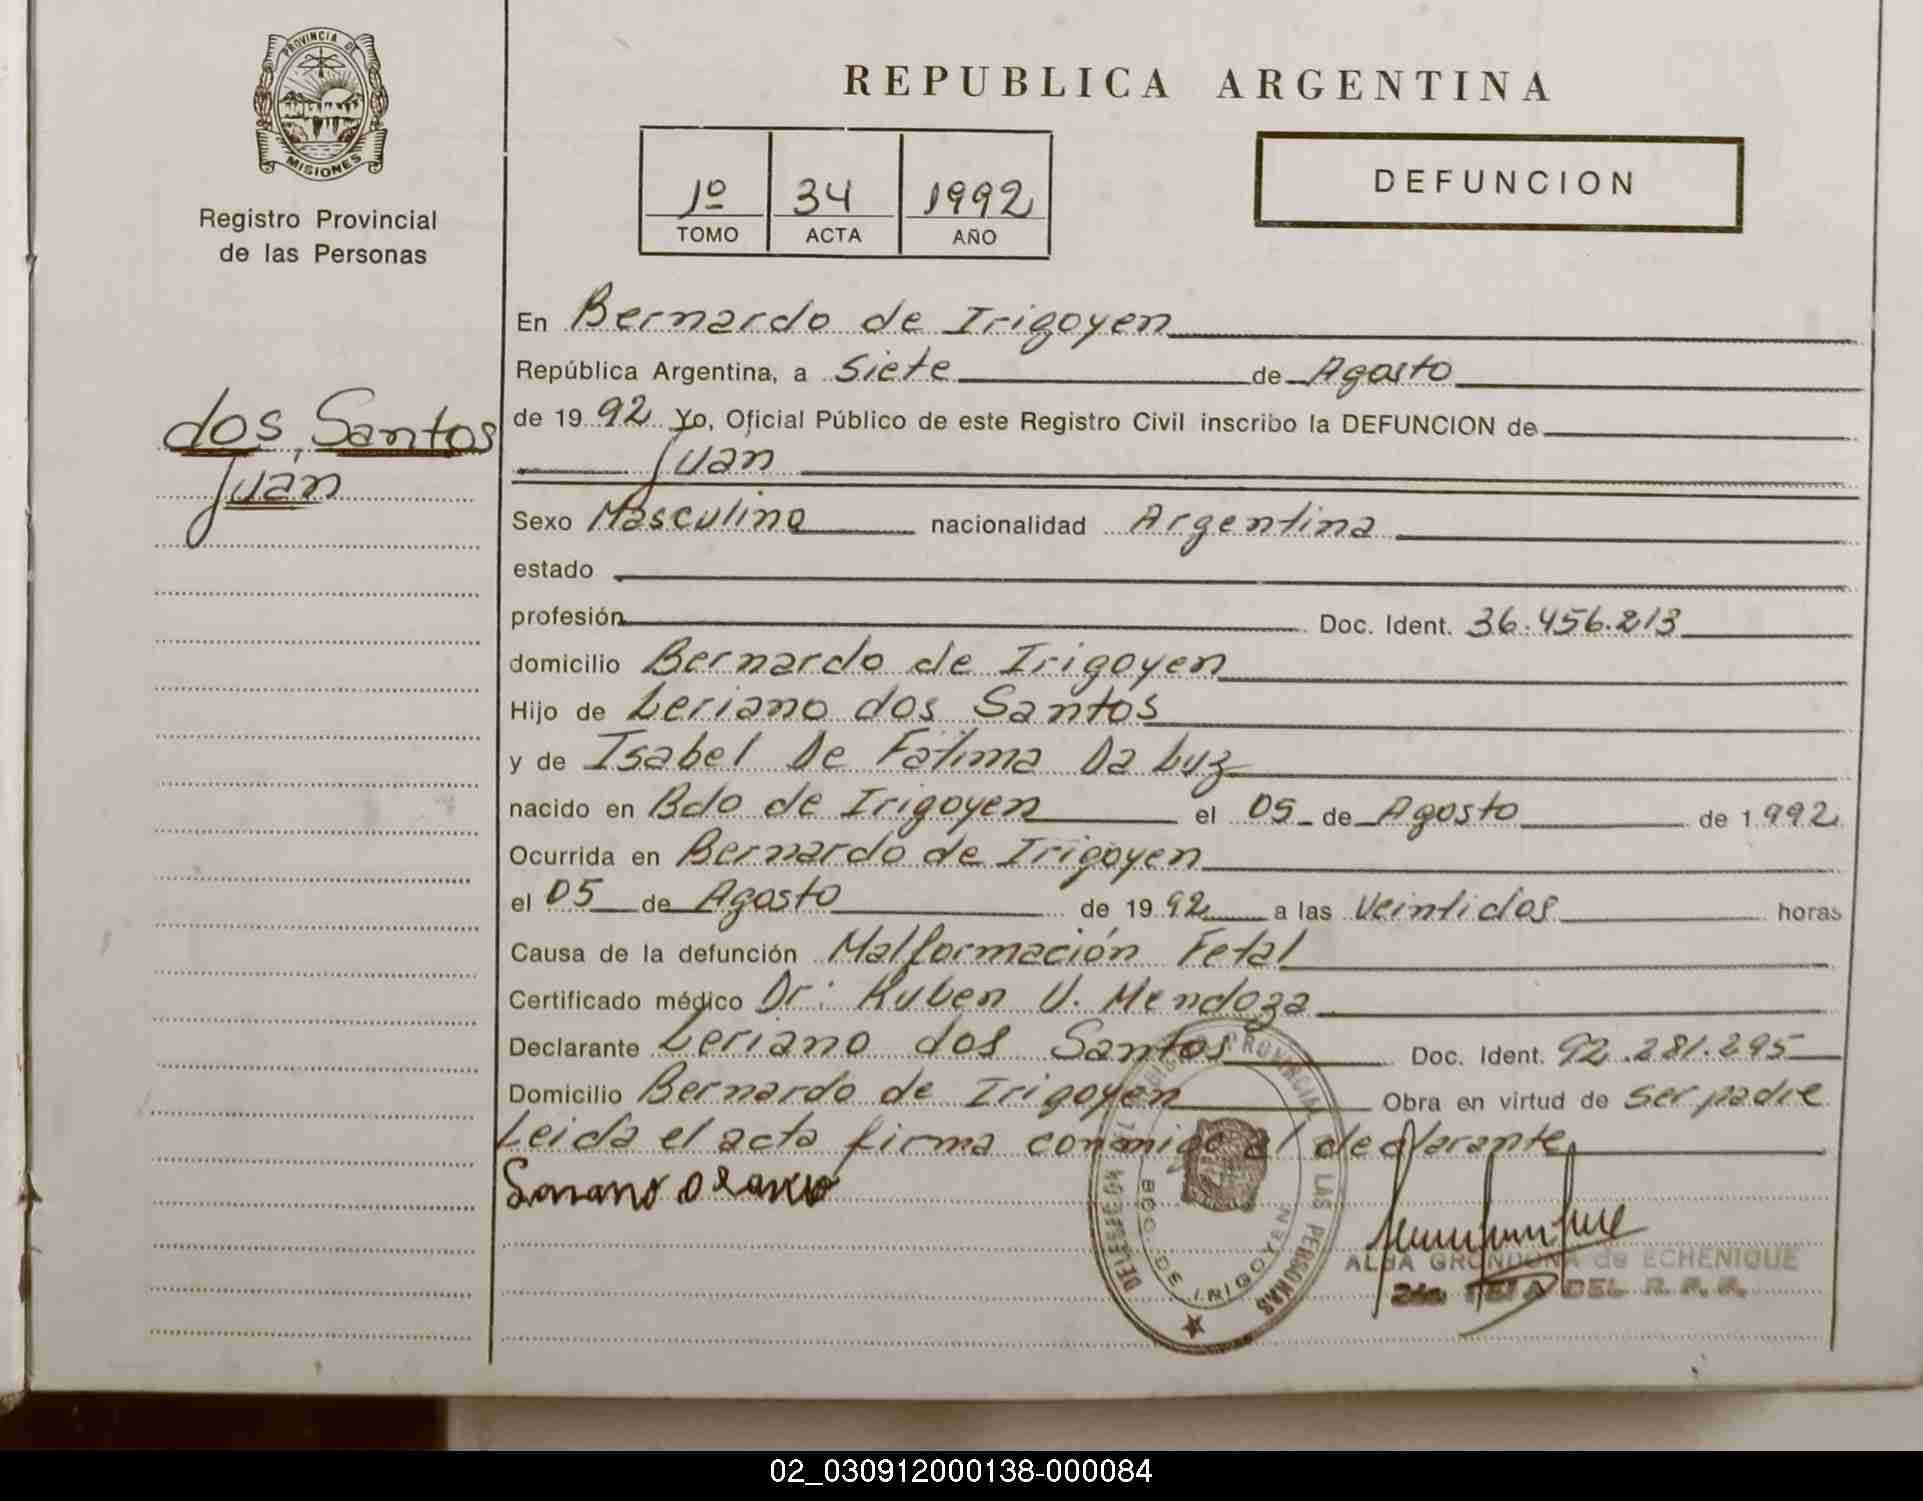 PROVINCIA DE
MISIONES
Registro Provincial
de las Personas
dos Santos
Juan
REPUBLICA ARGENTINA
1º 34 1992
TOMO ACTA AÑO
DEFUNCION
En Bernardo de Irigoyen
República Argentina, a Siete de Agosto
de 1992 Yo, Oficial Público de este Registro Civil inscribo la DEFUNCION de
Juan
Sexo Masculino nacionalidad Argentina
estado
profesión Doc. Ident. 36.456.213
domicilio Bernardo de Irigoyen
Hijo de Leriano dos Santos
y de Isabel De Fatima Da Luz
nacido en Bdo de Irigoyen el 05 de Agosto de 1992
Ocurrida en Bernardo de Irigoyen
el 05 de Agosto de 1992 a las Veintidos horas
Causa de la defunción Malformación Fetal
Certificado médico Dr: Ruben U. Mendoza
Declarante Leriano dos Santos Doc. Ident. 92.281.295
Domicilio Bernardo de Irigoyen Obra en virtud de ser padre
Leida el acta firma conmigo el declarante
PROVINCIAL DE LAS PERSONAS
DELEGACION
BDO. DE IRIGOYEN
ALBA GRONDONA de ECHENIQUE
DEL R. P. P.
02_030912000138-000084